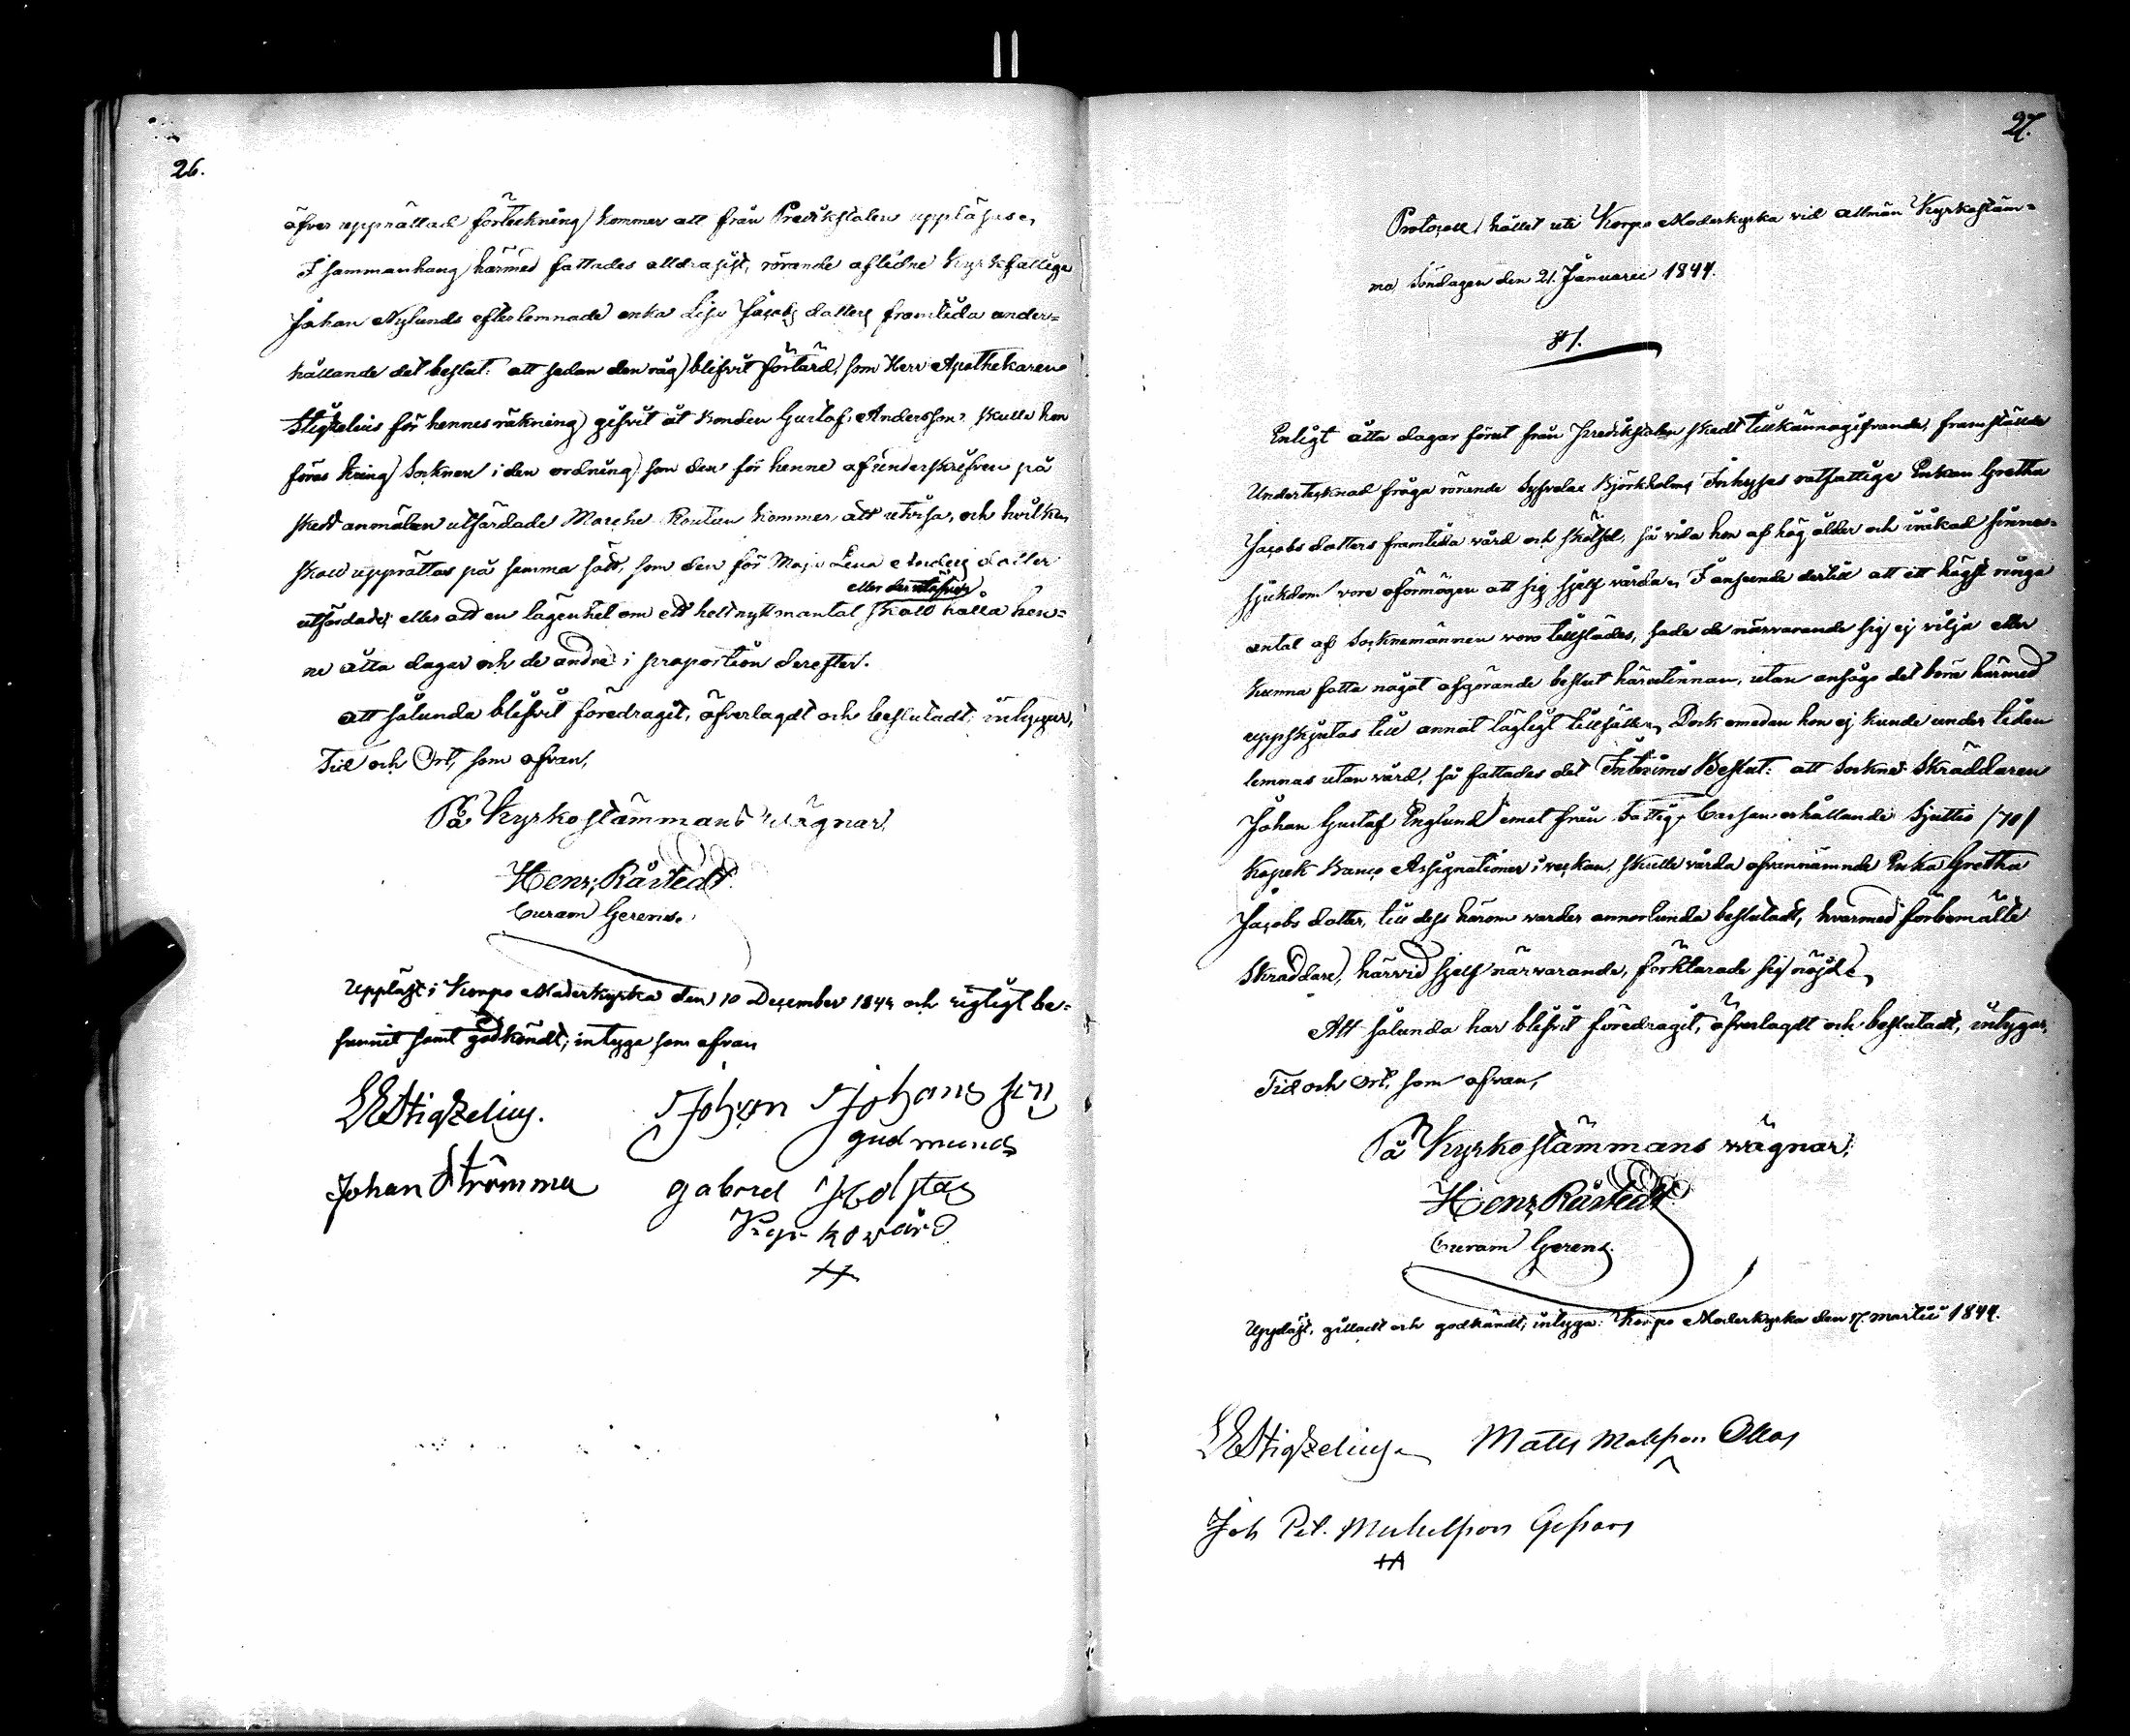 26.
öfver upprättad förteckning kommer att från Predikstolen uppläsas.
I sammanhang härmed fattades alldrasist, rörande aflidne Kyrkfattige
Johan Nylunds efterlemnade enka Lisa Jacobsdotters framtida under-
hållande det beslut: att sedan den råg blifvit förtärd, som Herr Apothekaren
Stigzelius för hennes räkning gifvit åt bonden Gustaf Andersson, skulle hon
föras kring Socknen i den ordning som den för henne af underskrifven på
skedd anmälan utfärdade Marche Routen kommer att utvisa, och hvilken
skall upprättas på samma sätt, som den för Maja Lena Andersdotter
eller derutöfver
utfärdades eller att en lägenhet om ett helt nytt mantal skall hålla hen-
ne åtta dagar och de andre i proportion derefter.
Att sålunda blifvit föredragit, öfverlagdt och beslutadt; intygar,
Tid och Ort, som ofvan,
På Kyrkostämmans vägnar,
Henr. Råstedt
Curam Gerens.
Uppläst i Korpo Moderkyrka den 10 December 1843 och rigtigt be-
funnit samt godkändt; intyga som ofvan
LEStigzelius.
Johan Johansson
gudmunds
Johan Strömma
gabriel
Kyrkovärd
27.
Protocoll hållet uti Korpo Moderkyrka vid allmän Kyrkostäm-
ma Söndagen den 21. Januarii 1844.
§ 1.
Enligt åtta dagar förut från Predikstolen skedt tillkännagifvande, framställde
Undertecknad fråga rörande Björkholms Inhyses rotfattige Enkan Gretha
Jacobsdotters framtida vård och skötsel, så vida hon af hög ålder och inikad sinnes-
sjukdom vore oförmögen att sig sjelf vårda. I anseende dertill att ett högst ringa
antal af Socknemännen voro tillstädes, sade de närvarande sig ej vilja eller
kunna fatta något afgörande beslut härutinnan, utan ansågo det böra härmed
uppskjutas till annat lägligt tillfälle. Dock emedan hon ej kunde under tiden
lemnas utan vård, så fattades det Interims Beslut: att Sockne Skräddaren
Johan Gustaf Englund emot från Fattig Cassan erhållande Sjuttio /70/
Kopek Banco Assignationer i veckan, skulle vårda ofvannämnde Enka Gretha
Jacobsdotter, till dess härom varder annorlunda beslutadt, hvarmed förbemälte
Skräddare, härvid sjelf närvarande, förklarade sig nöjd.
Att sålunda har blifvit föredragit, öfverlagdt och beslutadt, intygar,
Tid och Ort, som ofvan,
På Kyrkostämmans vägnar,
Henr. Råstedt
Curam Gerens.
Uppläst, gilladt och godkändt; intyga: Korpo Moderkyrka den 17. Martii 1844.
LEStigzelius
Matts Mattsson Ollas
Joh Pet. Michelsson